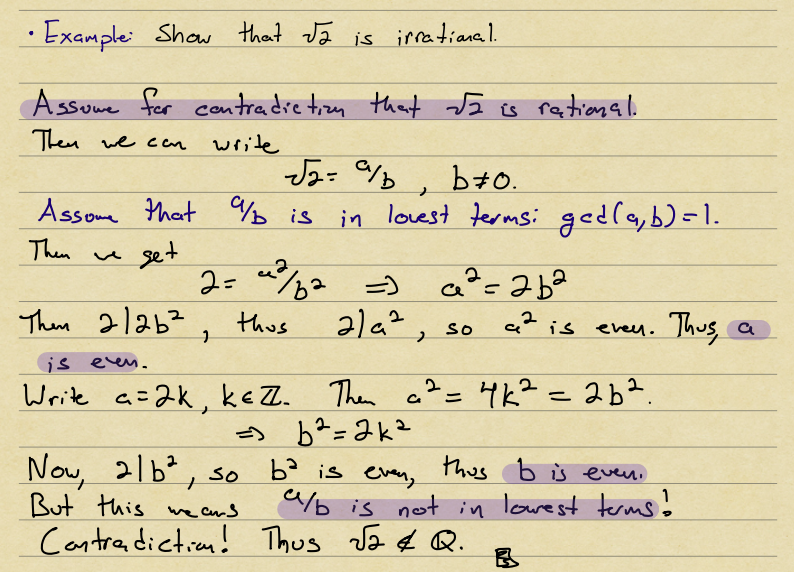 • Example: Show that √2 is irrational.
Assume for contradiction that √2 is rational.
Then we can write
√2 = a/b , b≠0.
Assume that a/b is in lowest terms: gcd(a,b)=1.
Then we get
2 = a²/b² ⟹ a² = 2b²
Then 2|2b², thus 2|a², so a² is even. Thus, a
is even.
Write a=2k, k∈ℤ. Then a² = 4k² = 2b².
⟹ b² = 2k²
Now, 2|b², so b² is even, thus b is even.
But this means a/b is not in lowest terms!
Contradiction! Thus √2 ∉ ℚ.